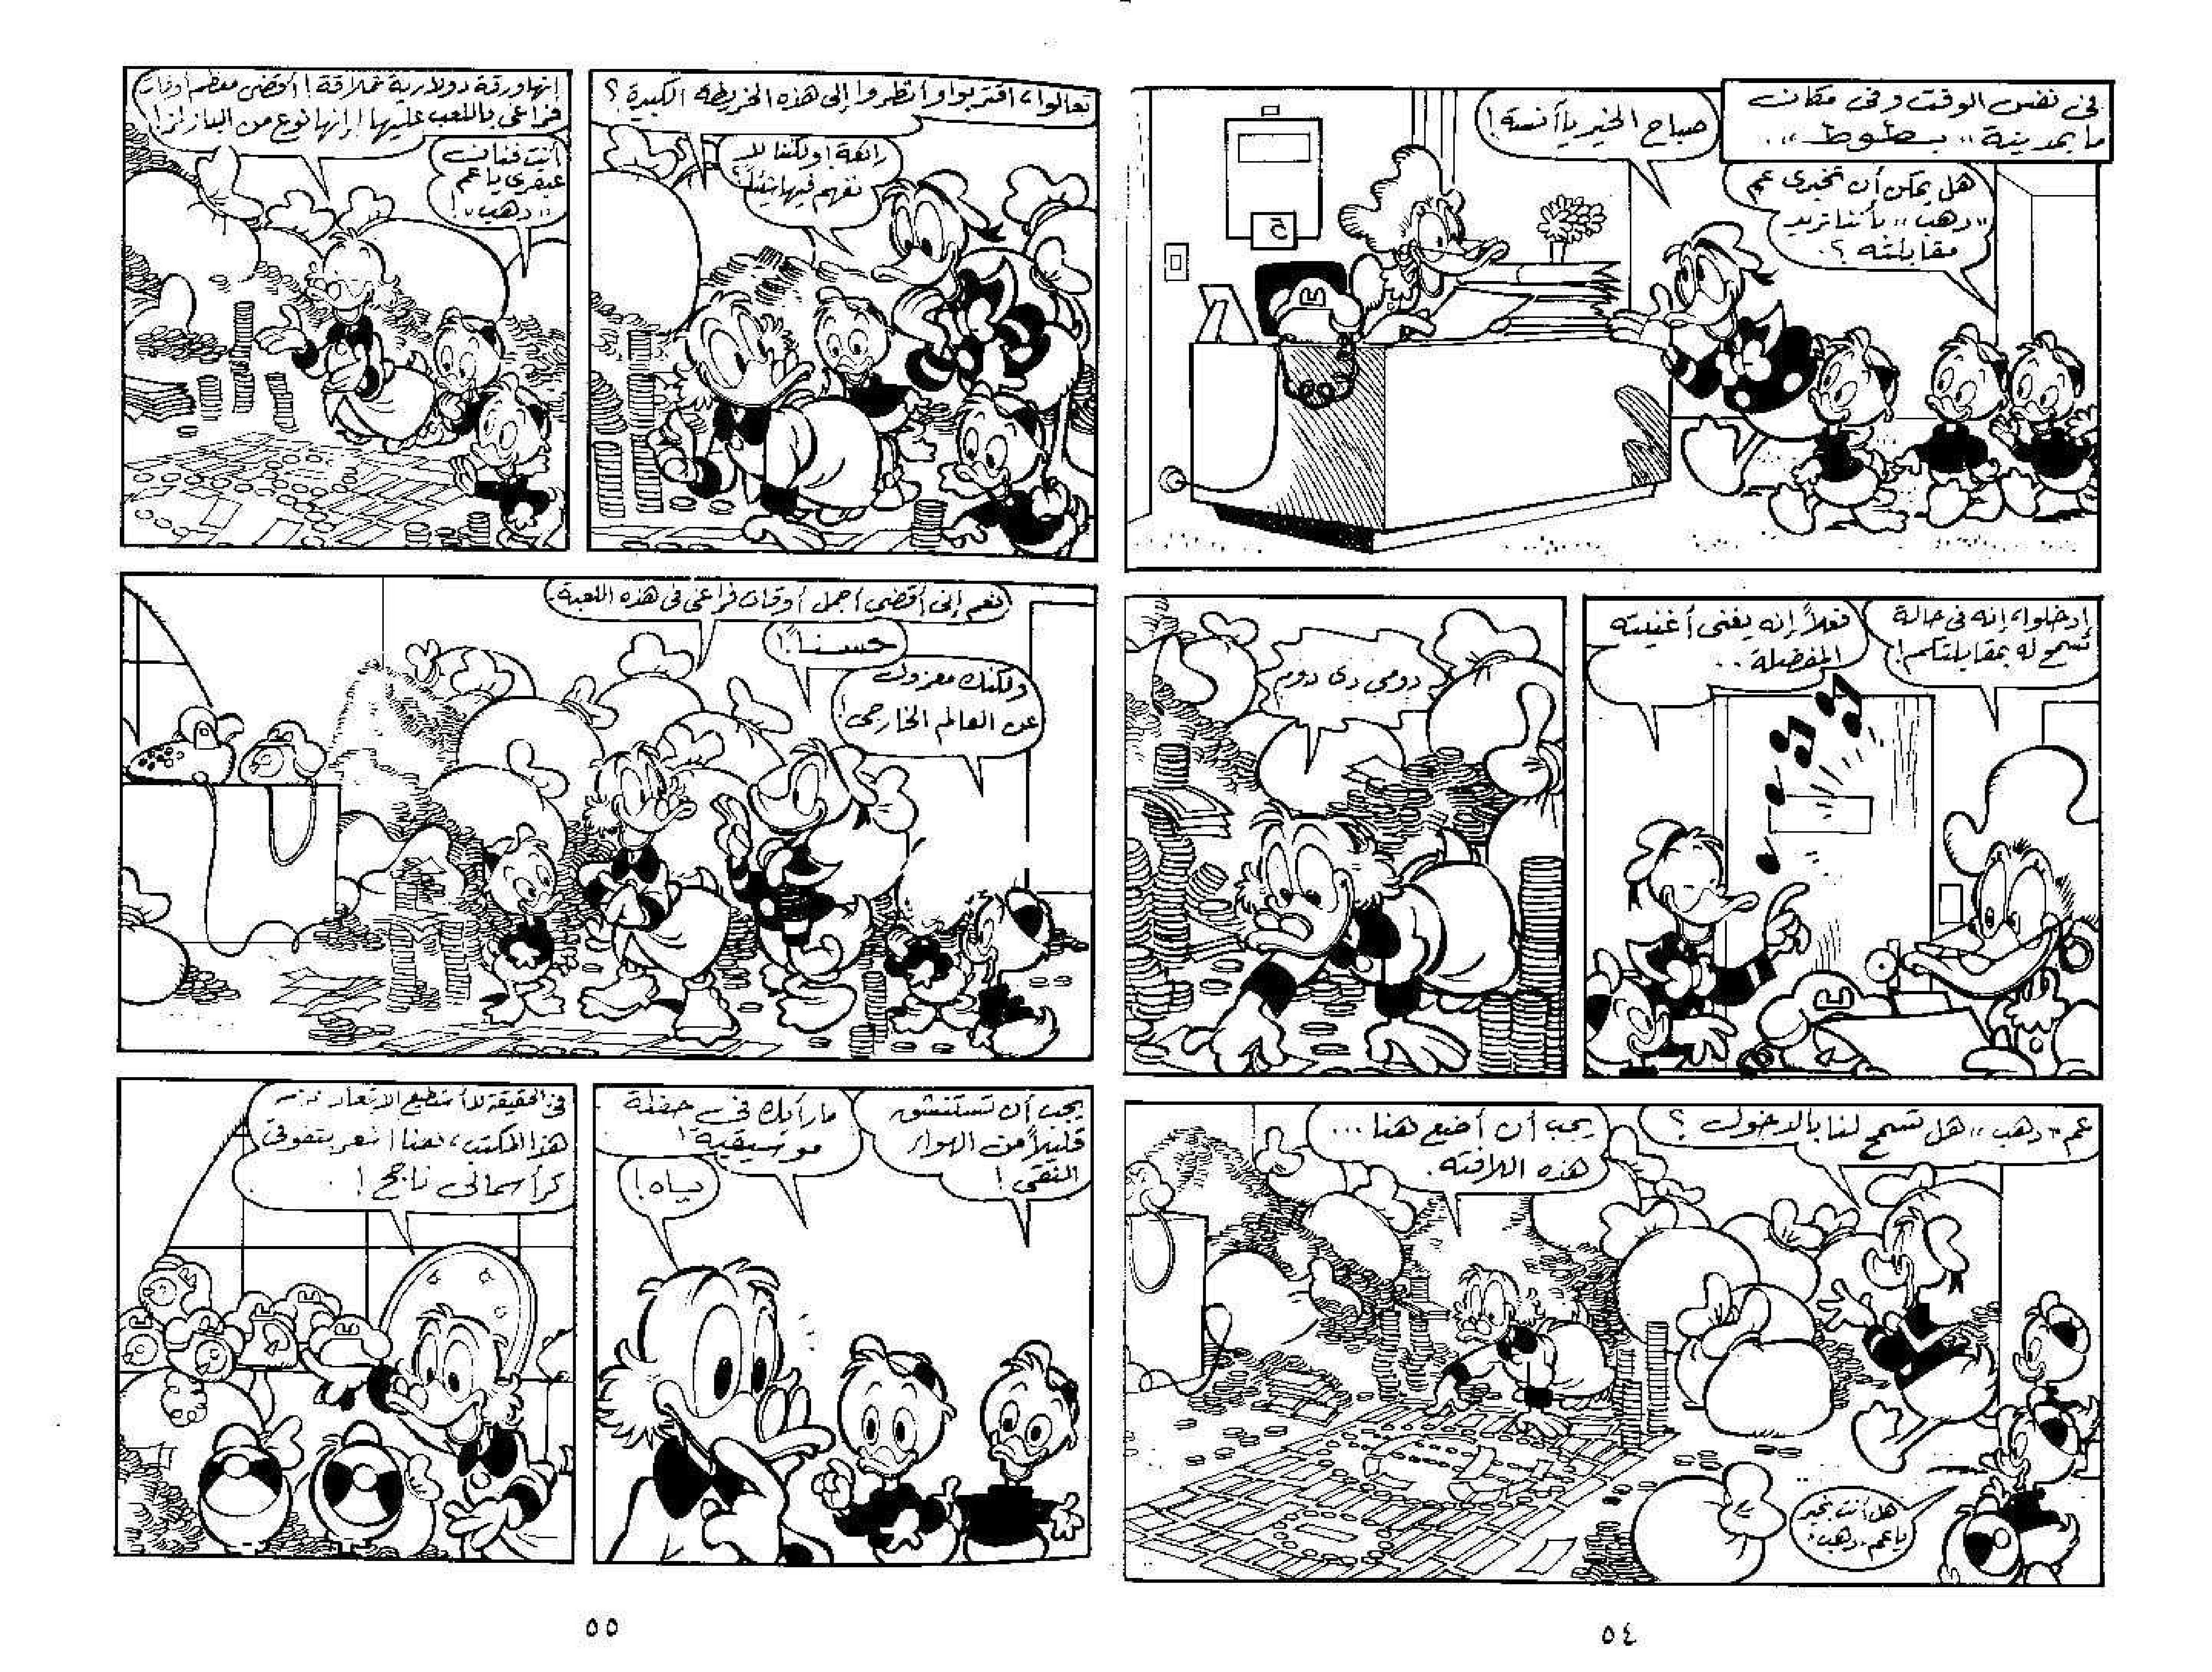 فى نفس الوقت وفى مكان
ما بمدينة «بطوط»..
صباح الخير يا آنسة!
هل يمكن أن تخبرى عم
«دهب» بأننا نريد
مقابلته؟
ادخلوا، إنه فى حالة
تسمح له بمقابلتكم!
فعلاً إنه يغنى أغنيته
المفضلة..
دومى دى دوم
عم «دهب» هل تسمح لنا بالدخول؟
يجب أن أضع هنا...
هذه اللافتة.
هل أنت بخير
يا عم «دهب»؟
٥٤
تعالوا، اقتربوا وانظروا إلى هذه الخريطة الكبيرة؟
رائعة! ولكننا لا
نفهم فيها شيئاً!
إنها ورقة دولارية عملاقة! أقضى معظم أوقات
فراغى باللعب عليها! إنها نوع من البازلز!
أنت فنان
عبقرى يا عم
«دهب»!
نعم إنى أقضى أجمل أوقات فراغى فى هذه اللعبة.
حسناً!
ولكنك معزول
عن العالم الخارجى!
يجب أن تستنشق
قليلاً من الهواء
النقى!
ما رأيك فى حفلة
موسيقية!
ياه!
فى الحقيقة لا أستطيع الابتعاد
هذا المكتب، هنا أشعر بتفوقى
كرأسمالى ناجح!
٥٥